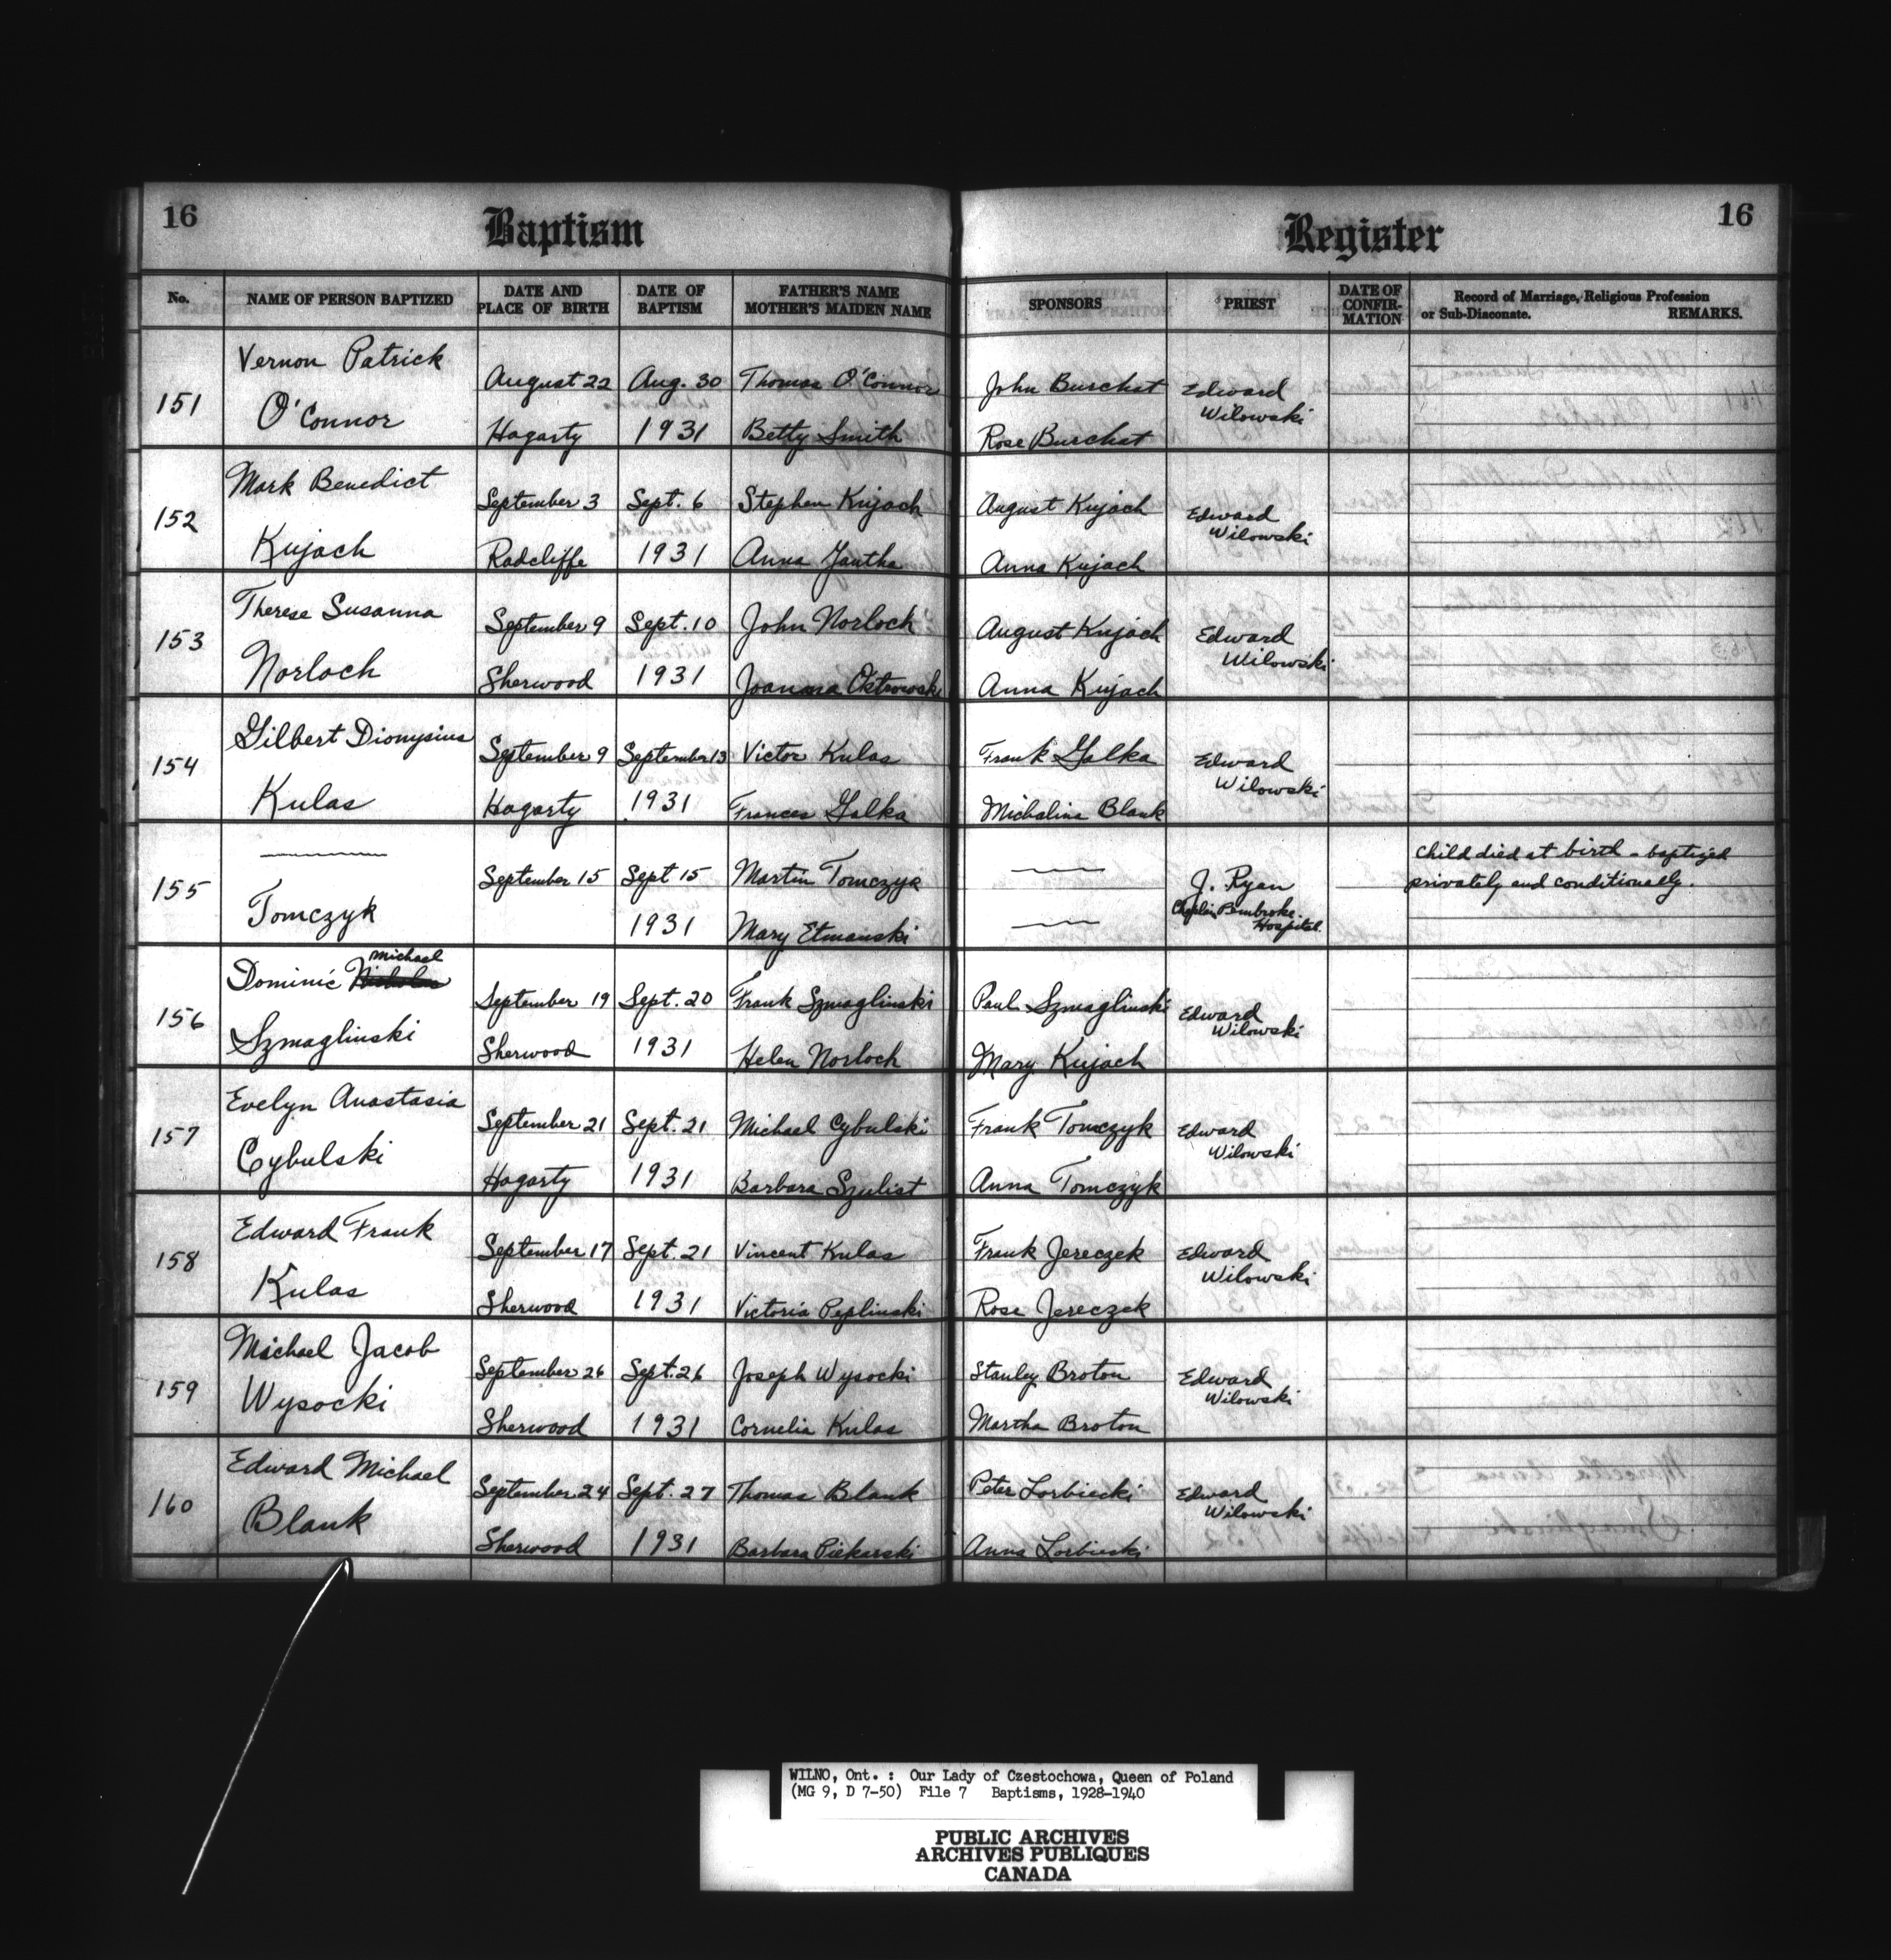 16 Baptism Register 16
No. NAME OF PERSON BAPTIZED DATE AND PLACE OF BIRTH DATE OF BAPTISM FATHER'S NAME MOTHER'S MAIDEN NAME SPONSORS PRIEST DATE OF CONFIR-MATION Record of Marriage, Religious Profession or Sub-Diaconate. REMARKS.
Vernon Patrick
151 August 22 Aug. 30 Thomas O'Connor John Burchat Edward
O'Connor Wilowski
Hagarty 1931 Betty Smith Rose Burchat
Mark Benedict
152 September 3 Sept. 6 Stephen Kujach August Kujach Edward
Kujach Wilowski
Radcliffe 1931 Anna Yantha Anna Kujach
Therese Susanna
153 September 9 Sept. 10 John Norloch August Kujach Edward
Norloch Wilowski
Sherwood 1931 Joanna Ostrowski Anna Kujach
Gilbert Dionysius
154 September 9 September 13 Victor Kulas Frank Galka Edward
Kulas Wilowski
Hagarty 1931 Frances Galka Michalina Blank
Child died at birth - baptized
155 September 15 Sept 15 Martin Tomczyk J. Ryan privately and conditionally.
Tomczyk Chaplin Pembroke
1931 Mary Etmanski Hospital.
Michael
Dominic
156 September 19 Sept. 20 Frank Szmaglinski Paul Szmaglinski Edward
Szmaglinski Wilowski
Sherwood 1931 Helen Norloch Mary Kujach
Evelyn Anastasia
157 September 21 Sept. 21 Michael Cybulski Frank Tomczyk Edward
Cybulski Wilowski
Hagarty 1931 Barbara Szulist Anna Tomczyk
Edward Frank
158 September 17 Sept. 21 Vincent Kulas Frank Jereczek Edward
Kulas Wilowski
Sherwood 1931 Victoria Peplinski Rose Jereczek
Michael Jacob
159 September 26 Sept. 26 Joseph Wysocki Stanley Broton Edward
Wysocki Wilowski
Sherwood 1931 Cornelia Kulas Martha Broton
Edward Michael
160 September 24 Sept. 27 Thomas Blank Peter Lorbiecki Edward
Blank Wilowski
Sherwood 1931 Barbara Piekarski Anna Lorbieski
WILNO, Ont. : Our Lady of Czestochowa, Queen of Poland
(MG 9, D 7-50) File 7 Baptisms, 1928-1940
PUBLIC ARCHIVES
ARCHIVES PUBLIQUES
CANADA